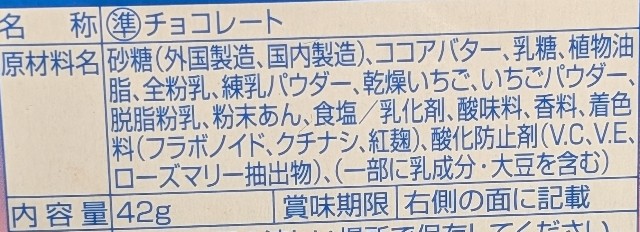 名 称 ㊜チョコレート
原材料名 砂糖(外国製造、国内製造)、ココアバター、乳糖、植物油
脂、全粉乳、練乳パウダー、乾燥いちご、いちごパウダー、
脱脂粉乳、粉末あん、食塩/乳化剤、酸味料、香料、着色
料(フラボノイド、クチナシ、紅麹)、酸化防止剤(V.C、V.E、
ローズマリー抽出物)、(一部に乳成分・大豆を含む)
内容量 42g 賞味期限 右側の面に記載
場所で保存してください